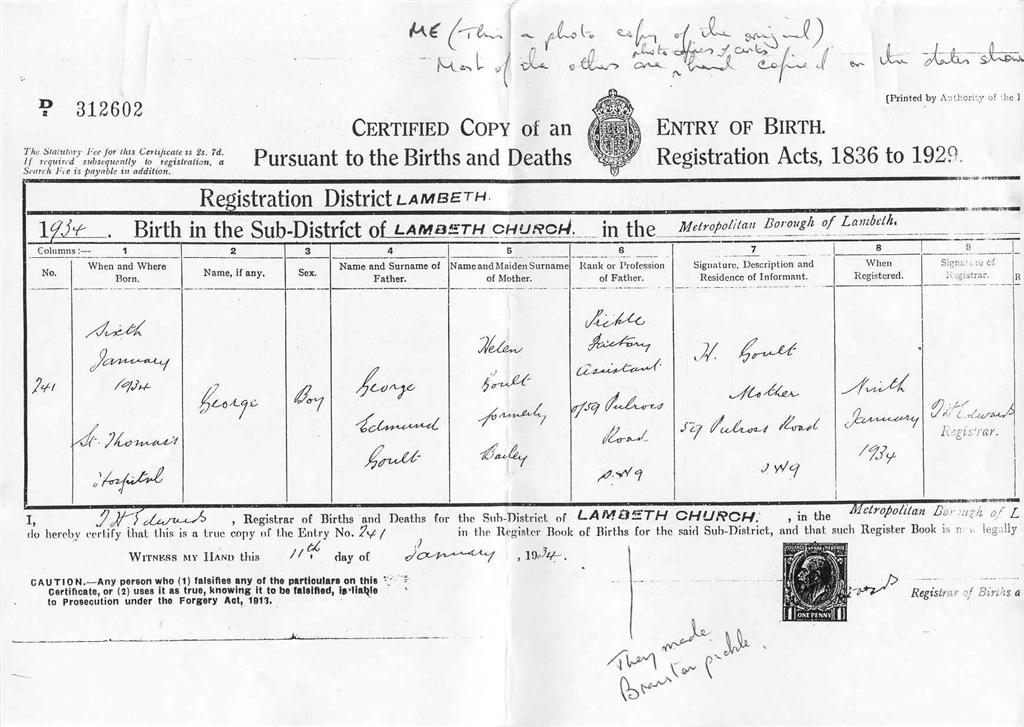 ME (This a photo copy of the original)
photo copies of certs
Most of the others are hand copied on the dates shown
D
2 312602
[Printed by Authority of the
CERTIFIED COPY of an ENTRY OF BIRTH.
The Statutory Fee for this Certificate is 2s. 7d.
If required subsequently to registration, a
Search Fee is payable in addition.
Pursuant to the Births and Deaths Registration Acts, 1836 to 1929.
Registration District LAMBETH.
1934. Birth in the Sub-District of LAMBETH CHURCH. in the Metropolitan Borough of Lambeth.
Columns:— 1 2 3 4 5 6 7 8 9
No. When and Where Born. Name, if any. Sex. Name and Surname of Father. Name and Maiden Surname of Mother. Rank or Profession of Father. Signature, Description and Residence of Informant. When Registered. Signature of Registrar. R
241
Sixth
January
1934
St. Thomas's
Hospital
George
Boy
George
Edmund
Goult
Helen
Goult
formerly
Bailey
Pickle
Factory
Assistant
of 59 Pulross
Road
S.W9
H. Goult
Mother
59 Pulross Road
SW9
Ninth
January
1934
J H Edwards
Registrar.
I, J H Edwards, Registrar of Births and Deaths for the Sub-District of LAMBETH CHURCH., in the Metropolitan Borough of L
do hereby certify that this is a true copy of the Entry No. 241 in the Register Book of Births for the said Sub-District, and that such Register Book is now legally
WITNESS MY HAND this 11th day of January, 1934.
CAUTION.—Any person who (1) falsifies any of the particulars on this
Certificate, or (2) uses it as true, knowing it to be falsified, is liable
to Prosecution under the Forgery Act, 1913.
POSTAGE REVENUE
1 ONE PENNY 1
Registrar of Births a
They made
Branston pickle.